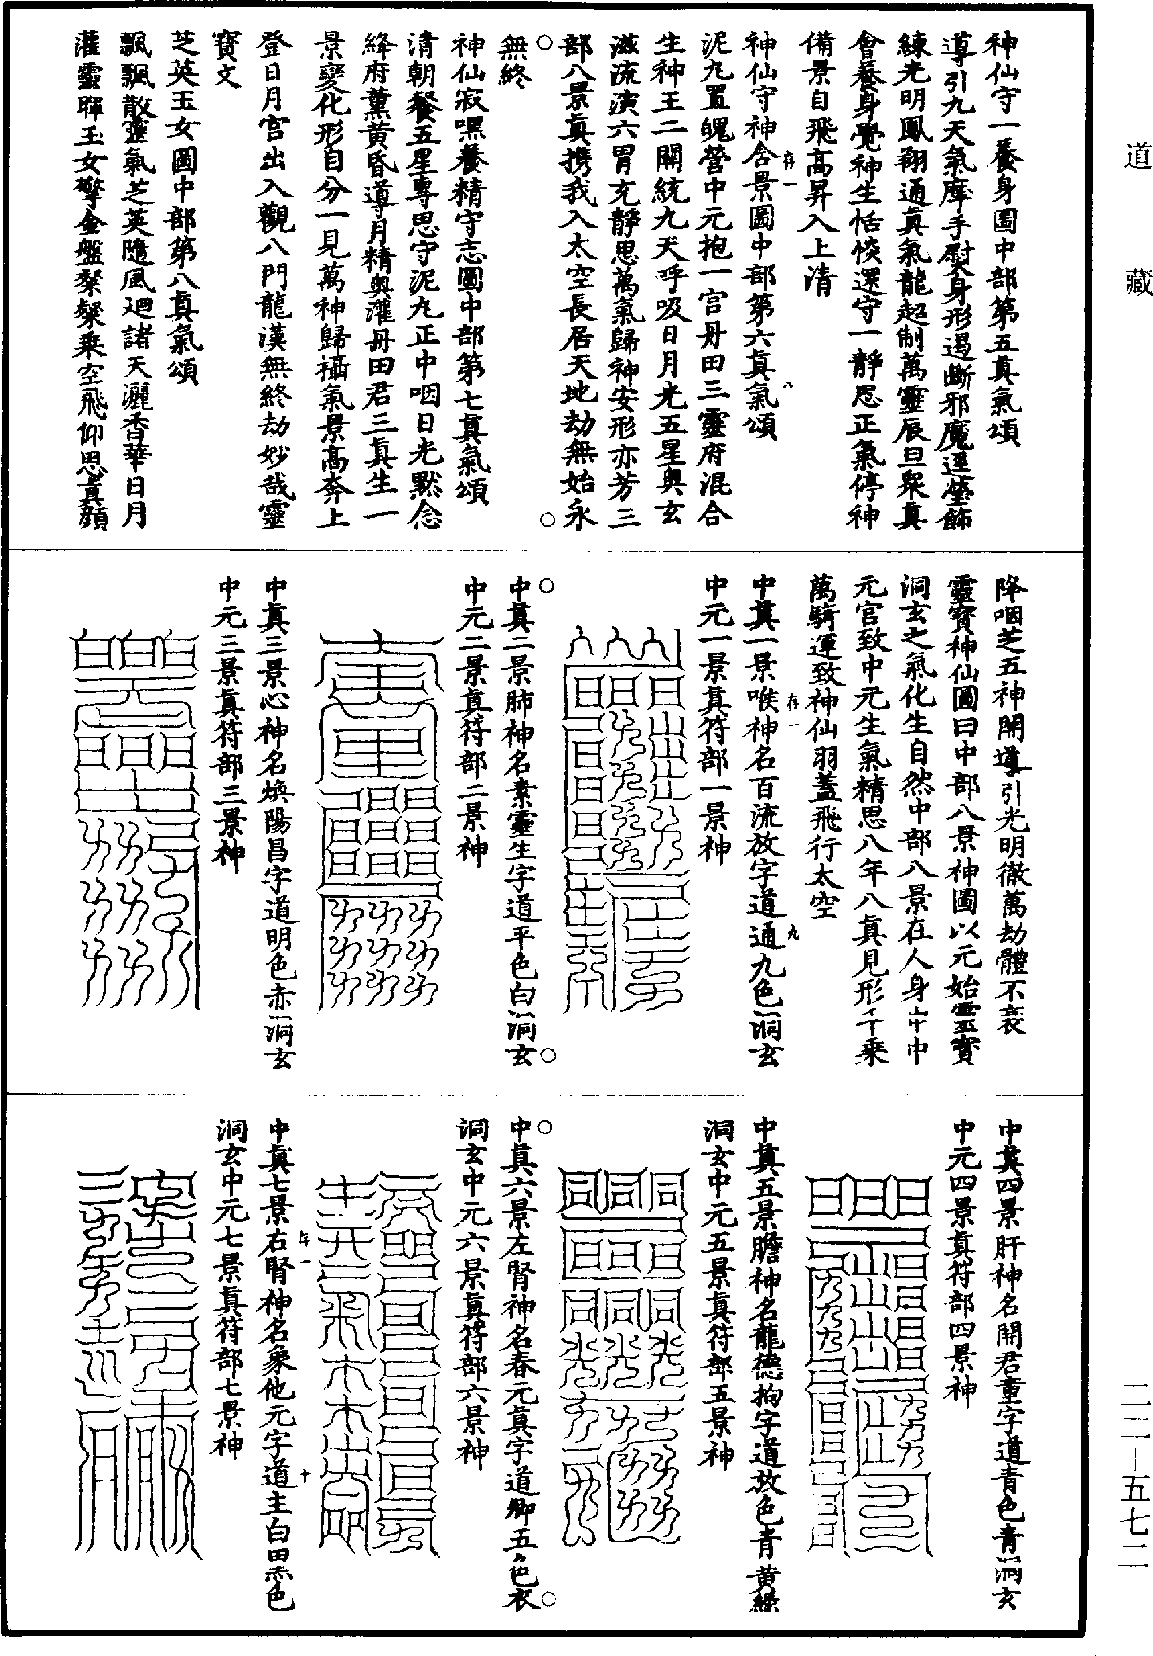 道藏
神仙守一養身圖中部第五真氣頌
導引九天氣摩手尉身形遏斷邪魔逕瑩飾
練光明鳳翔通真氣龍超制萬靈辰旦聚真
會養身覺神生恬惔還守一靜思正氣停神
備景自飛高昇入上清
存一
八
神仙守神含景圖中部第六真氣頌
泥丸置魄營中元抱一宮丹田三靈府混合
生神王二關統九天呼吸日月光五星與玄
滋流演六胃充靜思萬氣歸神安形亦芳三
部八景真携我入太空長居天地劫無始永
無終
神仙寂嘿養精守志圖中部第七真氣頌
清朝餐五星專思守泥丸正中咽日光默念
絳府薰黃昏導月精與灌丹田君三真生一
景變化形自分一見萬神歸攝氣景高奔上
登日月宮出入觀八門龍漢無終劫妙哉靈
寶文
芝英玉女圖中部第八真氣頌
飄飄散靈氣芝英隨風迴諸天灑香華日月
灌靈暉玉女擎金盤粲粲乘空飛仰思真顏
降咽芝五神開導引光明徹萬劫體不衰
靈寶神仙圖曰中部八景神圖以元始靈寶
洞玄之氣化生自然中部八景在人身中中
元宮致中元生氣精思八年八真見形千乘
萬騎運致神仙羽蓋飛行太空
存一
九
中真一景喉神名百流放字道通九色洞玄
中元一景真符部一景神
中真二景肺神名素靈生字道平色白洞玄
中元二景真符部二景神
中真三景心神名煥陽昌字道明色赤洞玄
中元三景真符部三景神
中真四景肝神名開君童字道青色青洞玄
中元四景真符部四景神
中真五景膽神名龍德拘字道放色青黃綠
洞玄中元五景真符部五景神
中真六景左腎神名春元真字道卿五色衣
洞玄中元六景真符部六景神
存一
十
中真七景右腎神名象他元字道主白黑色
洞玄中元七景真符部七景神
二二—五七二